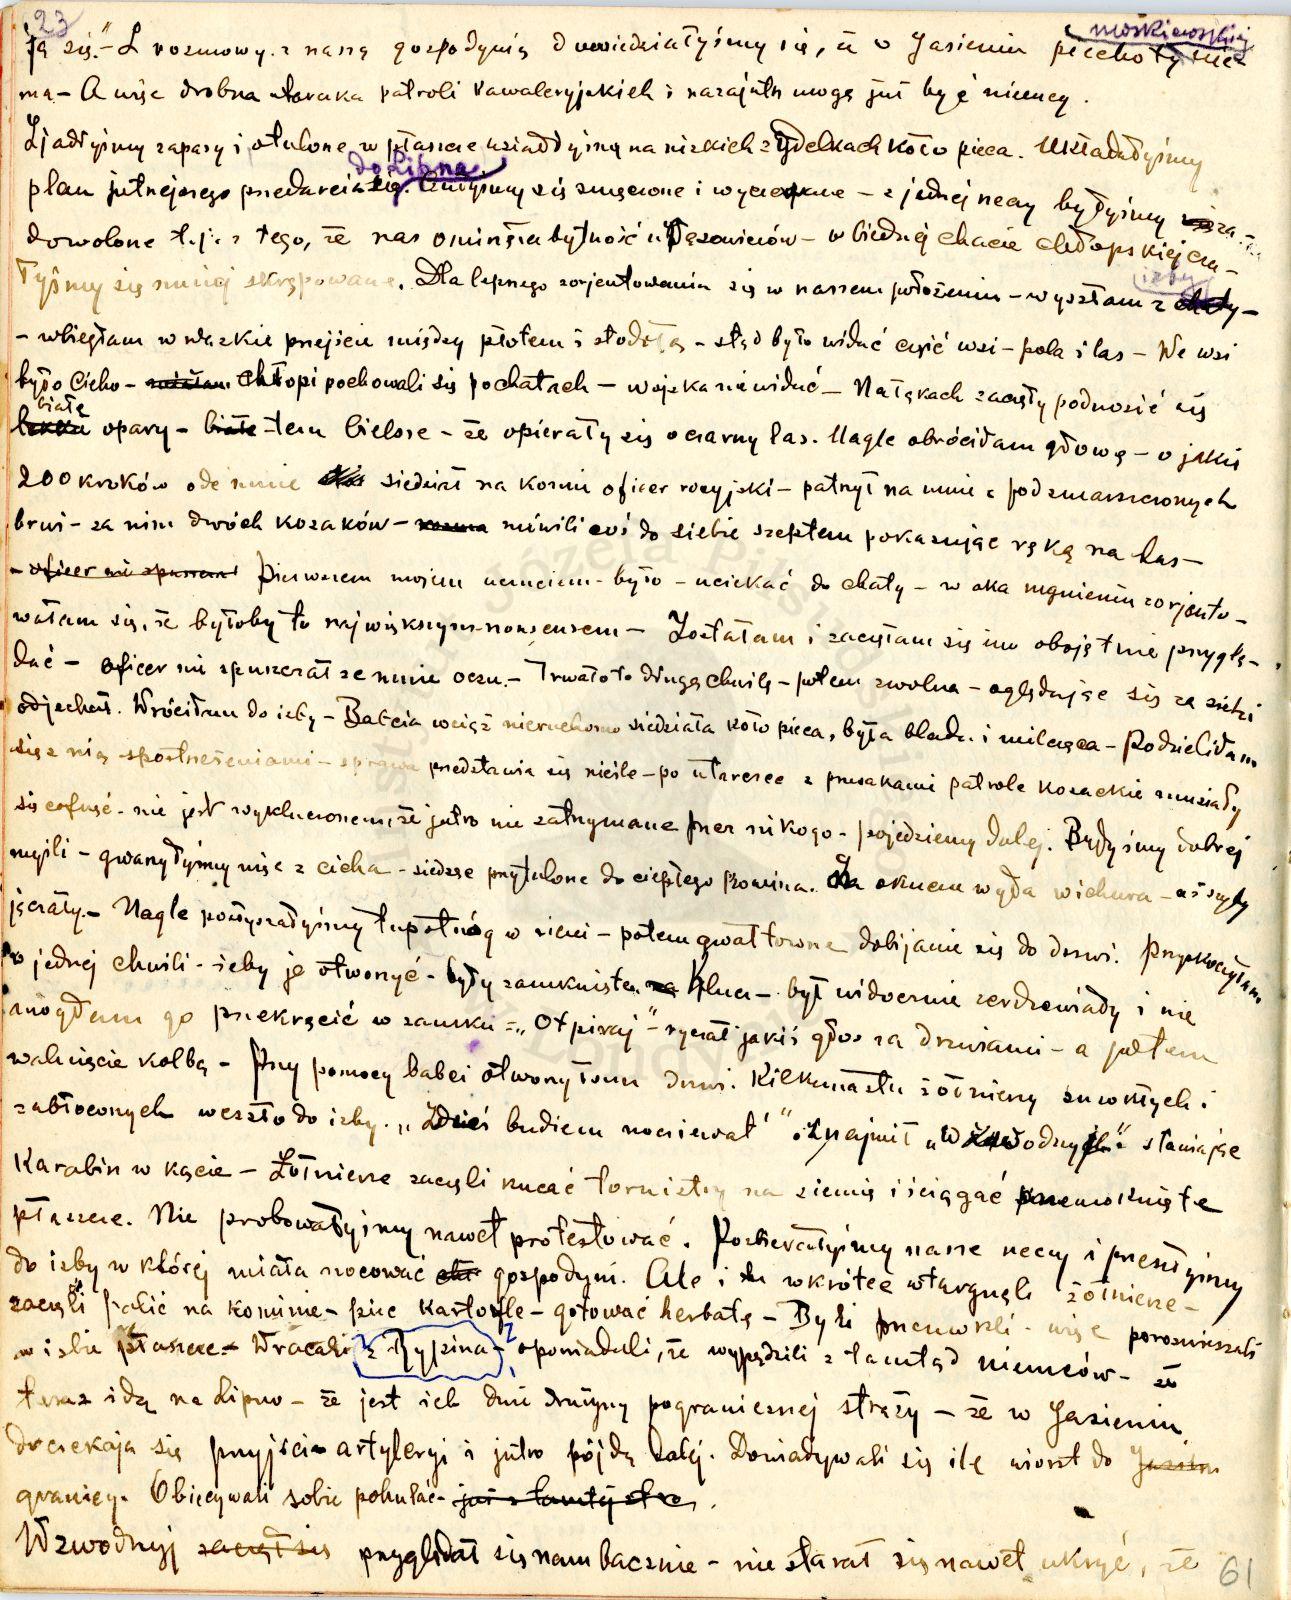 23
moskiewskiej
ją się."– Z rozmowy z naszą gospodynią dowiedziałyśmy się, że w Jasieniu piechoty nie
ma – A więc drobna utarczka patroli kawaleryjskich i nazajutrz mogą już być niemcy.
Zjadłyśmy zapasy i otulone w płaszcze usiadłyśmy na nizkich zydelkach koło pieca. Układałyśmy
do Lipna
plan jutrzejszego przedarcia się. Czułyśmy się zmęczone i wyczerpane – z jednej rzeczy byłyśmy
dowolone t.j. z tego, że nas ominęła bytność u Tęsowiczów – w biednej chacie chłopskiej czu–
izby
łyśmy się mniej skrępowane. Dla lepszego zorjentowania się w naszem położeniu – wyszłam z chaty –
– wbiegłam w wązkie przejście między płotem i stodołą – stąd było widać część wsi – pola i las – We wsi
było cicho – chłopi pochowali się po chatach – wojska nie widać – Na łąkach zaczęły podnosić się
białe
opary – białe tem bielsze – że opierały się o czarny las. Nagle obróciłam głowę – o jakie
200 kroków ode mnie siedział na koniu oficer rosyjski – patrzył na mnie z pod zmarszczonych
brwi – za nim dwóch kozaków – mówili coś do siebie szeptem pokazując ręką na las –
– oficer nie spuszczał Pierwszem mojem uczuciem – było – uciekać do chaty – w oka mgnieniu zorjento–
wałam się, że byłoby to największym nonsensem – Zostałam i zaczęłam się im obojętnie przyglą–
dać – oficer nie spuszczał ze mnie oczu. – Trwało to długą chwilę – potem zwolna – oglądając się za siebie
odjechał. Wróciłam do izby – Babcia wciąż nieruchomo siedziała koło pieca, była blada i milcząca – Podzieliłam
się z nią spostrzeżeniami – sprawa przedstawia się nieźle – po utarczce z prusakami patrole kozackie musiały
się cofnąć – nie jest wykluczonem, że jutro nie zatrzymane przez nikogo – pojedziemy dalej. Byłyśmy dobrej
myśli – gwarzyłyśmy więc z cicha – siedząc przytulone do ciepłego komina. Za oknem wyła wichura – aż szyby
jęczały. – Nagle posłyszałyśmy tupot nóg w sieni – potem gwałtowne dobijanie się do drzwi. Przyskoczyłam
w jednej chwili – żeby je otworzyć – były zamknięte na klucz – był widocznie zerdzewiały i nie
mogłam go przekręcić w zamku – „Otpiraj" – ryczał jakiś głos za drzwiami – a potem
walnięcie kolbą – Przy pomocy babci otworzyłam drzwi. Kilkunastu żołnierzy zmokłych i
zabłoconych weszło do izby. „Zdieś budiem nociewat'" oznajmił „Wzwodnyj" stawiając
karabin w kącie – Żołnierze zaczęli rzucać tornistry na ziemię i ściągać przemoknięte
płaszcze. Nie probowałyśmy nawet protestować. Pozbierałyśmy nasze rzeczy i przeszłyśmy
do izby w której miała nocować gospodyni. Ale i tu wkrótce wtargnęli żołnierze –
zaczęli palić na kominie – piec kartofle – gotować herbatę – Byli przemokli – więc porozwieszali
w izbie płaszcze – Wracali z Rypina – opowiadali, że wypędzili z tamtąd niemców – że
teraz idą na Lipno – że jest ich dwie drużyny pogranicznej straży – że w Jasieniu
doczekają się przyjścia artylerji i jutro pójdą dalej. Dowiadywali się ile wiorst do
granicy. Obiecywali sobie pohulać – już z tamtej stro.
Wzwodnyj zaczął się przyglądał się nam bacznie – nie starał się nawet ukryć, że
61